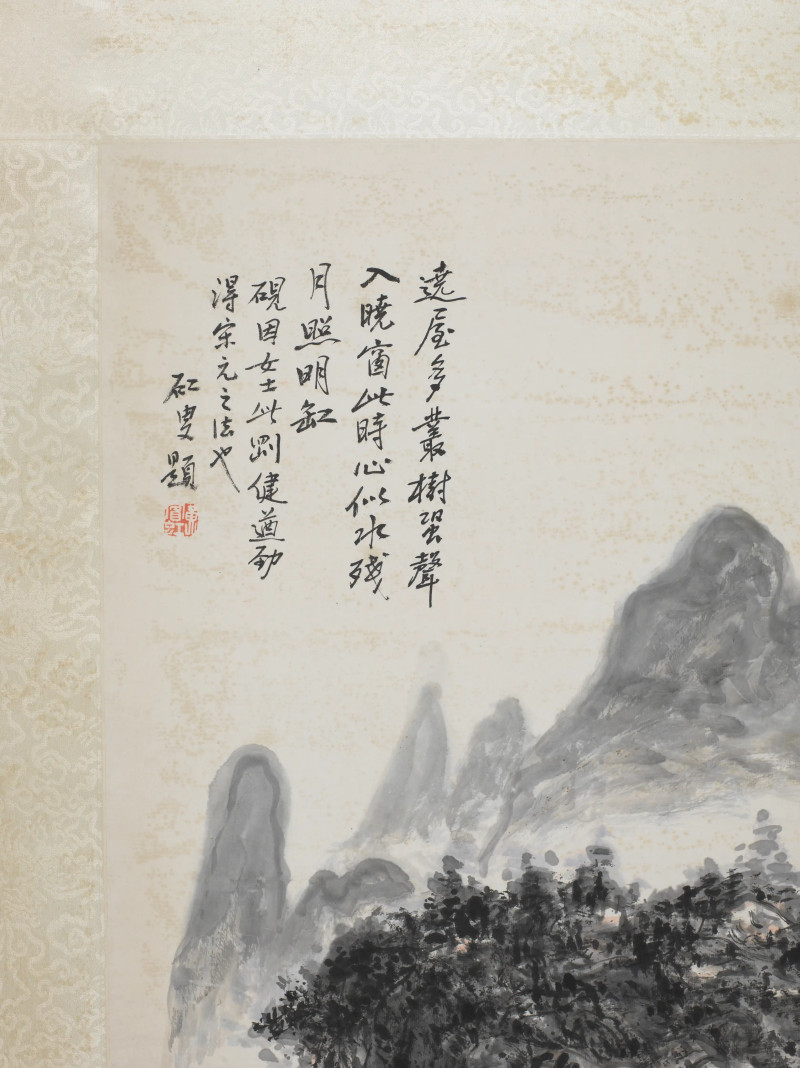 遶屋多叢樹蛩聲
入曉窗此時心似水殘
月照明缸
硯因女士此剛健遒勁
得宋元之法也
矼叟題